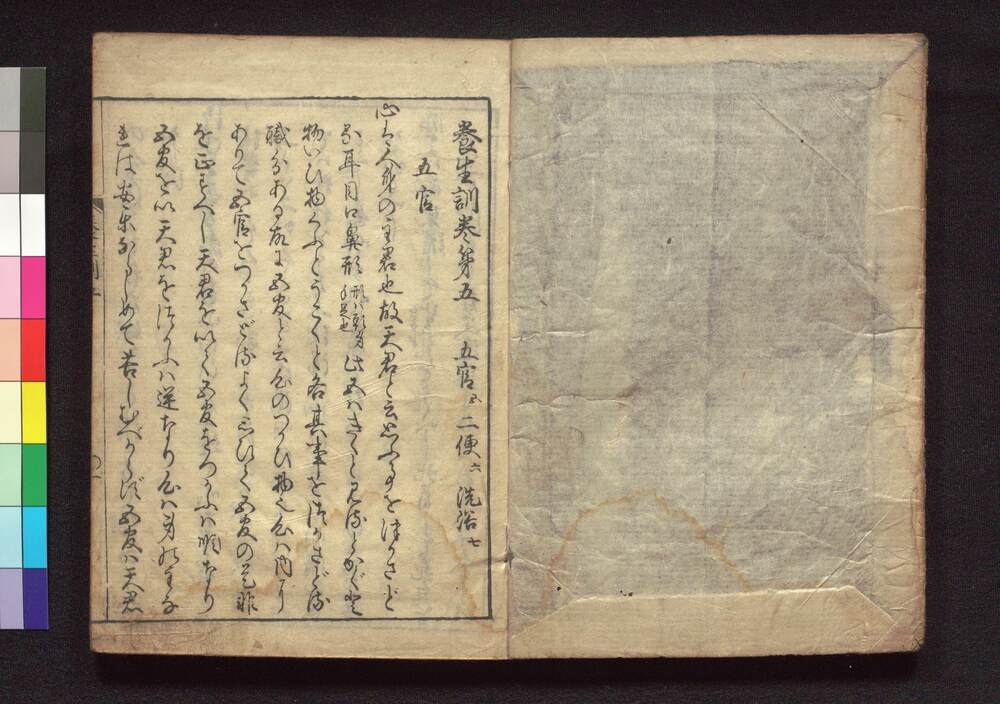 養生訓巻第五　五官五　二便六　洗浴七
五官
心は人身の主君也故天君と云思ふ事をつかさど
る耳目口鼻形形は頭身手足也此五はきくと見るとかぐと
物いひ物くふとうごくと各其事をつかさどる
職分ある故に五官と云心のつかひ物也心は内に
ありて五官をつかさどるよく思ひて五官の是非
を正すべし天君を以て五官をつかふは順なり
五官を以天君をつかふは逆なり心は身の主な
れば安楽ならしめて苦しむべからず五官は天君